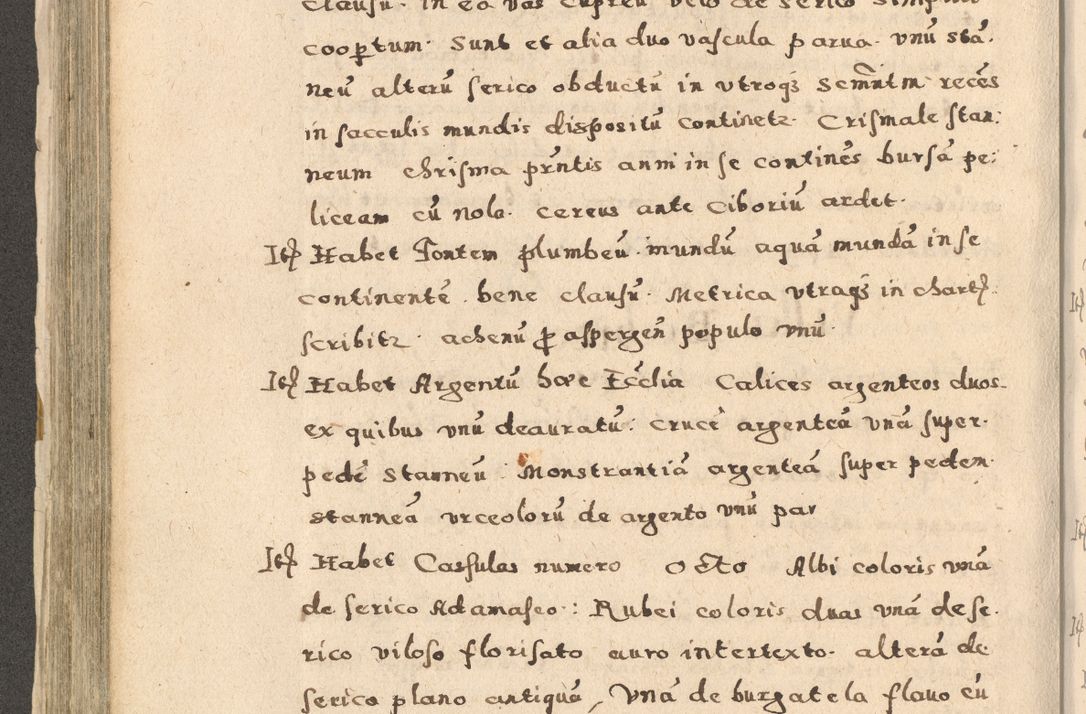 clausū. in ea vas cupreū
cooptum. Sunt et alia duo vascula parua. vnū stā.
neū alterū serico obductū in vtroqz Scm̄ntm recēs
in sacculis mundis dispositū continetr. Crismale stan:
neum chrisma pr̄ntis anni in se continēs bursā pe:
liceam cū nola. Cereus ante Ciborium ardet.
Itē Habet Fontem plumbeū. mundū aquā mundā in se
continentē. bene clausū. Metrica vtraqz in chartꝭ.
scribitr. achenū ꝓ aspergen̄ populo vnū.
Itē Habet Argentū hæc Ecclia Calices argenteos duos.
ex quibus vnū deauratū: Crucē argenteā vnā super.
pedē stanneū. Monstrantiā argenteā super pedem.
stanneā vrceolorū de argento vnū par
Itē Habet Cassulas numero Octo Albi coloris vnā
de serico Adamasco: Rubei coloris duas vnā de se.
rico viloso florisato auro intertexto. alterā de
serico plano antiquā, Vnā de burgatela flauo cū